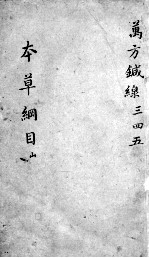 萬方鍼線三四五
本草綱目